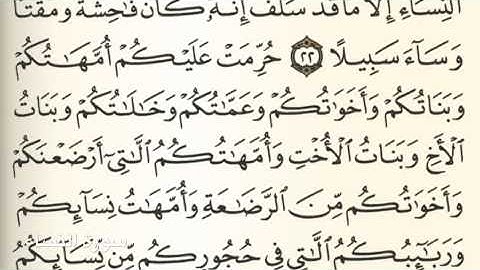 النِّسَاءِ إِلَّا مَا قَدْ سَلَفَ إِنَّهُ كَانَ فَاحِشَةً وَمَقْتًا
وَسَاءَ سَبِيلًا ٢٢ حُرِّمَتْ عَلَيْكُمْ أُمَّهَاتُكُمْ
وَبَنَاتُكُمْ وَأَخَوَاتُكُمْ وَعَمَّاتُكُمْ وَخَالَاتُكُمْ وَبَنَاتُ
الْأَخِ وَبَنَاتُ الْأُخْتِ وَأُمَّهَاتُكُمُ اللَّاتِي أَرْضَعْنَكُمْ
وَأَخَوَاتُكُمْ مِنَ الرَّضَاعَةِ وَأُمَّهَاتُ نِسَائِكُمْ
وَرَبَائِبُكُمُ اللَّاتِي فِي حُجُورِكُمْ مِنْ نِسَائِكُمُ
سورة النساء